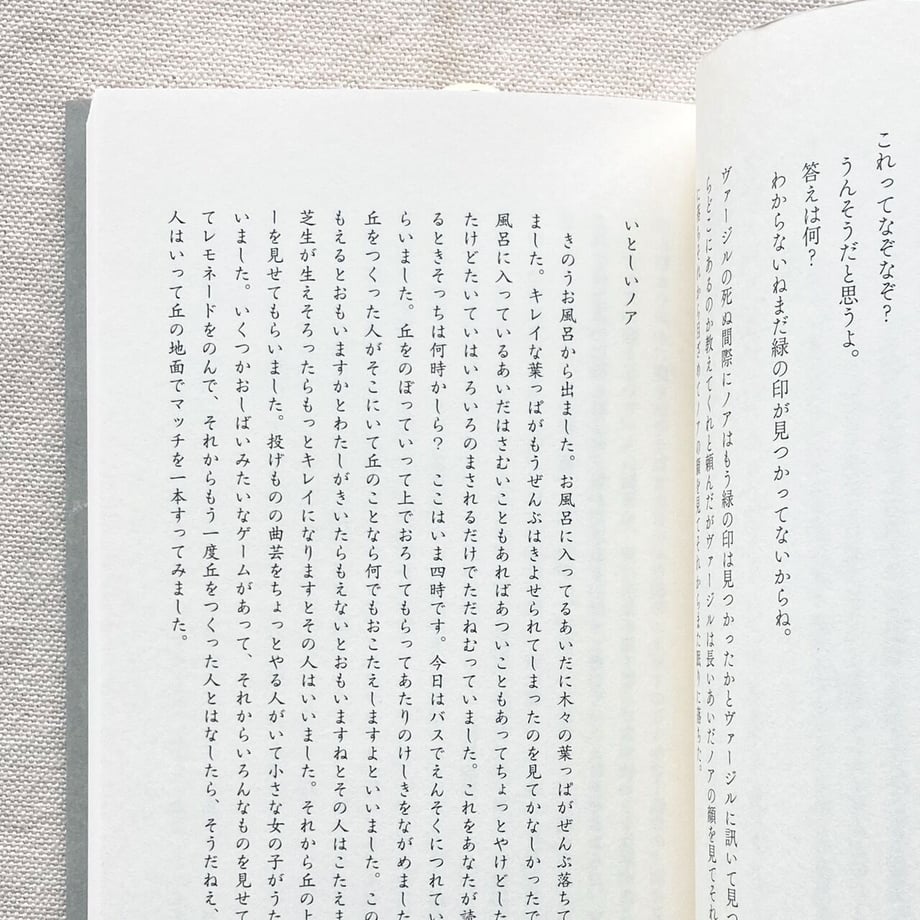 これってなぞなぞ？
うんそうだと思うよ。
答えは何？
わからないねまだ緑の印が見つかってないからね。
ヴァージルの死ぬ間際にノアはもう緑の印は見つかったかとヴァージルに訊いて見つ
らどこにあるのか教えてくれと頼んだがヴァージルは長いあいだノアの顔を見てそれ
いとしいノア
きのうお風呂から出ました。お風呂に入ってるあいだに木々の葉っぱがぜんぶ落ちて
ました。キレイな葉っぱがもうぜんぶはきよせられてしまったのを見てかなしかったで
風呂に入っているあいだはさむいこともあればあついこともあってちょっとやけどした
たけどたいていはいろいろのまされるだけでただねむっていました。これをあなたが読
るときそっちは何時かしら？　ここはいま四時です。今日はバスでえんそくにつれてい
らいました。丘をのぼっていって上でおろしてもらってあたりのけしきをながめました
丘をつくった人がそこにいて丘のことなら何でもおこたえしますよといいました。この
もえるとおもいますかとわたしがきいたらもえないとおもいますねとその人はこたえま
芝生が生えそろったらもっとキレイになりますとその人はいいました。それから丘の上
ーを見せてもらいました。投げものの曲芸をちょっとやる人がいて小さな女の子がうた
いました。いくつかおしばいみたいなゲームがあって、それからいろんなものを見せて
てレモネードをのんで、それからもう一度丘をつくった人とはなしたら、そうだねえ、
人はいって丘の地面でマッチを一本すってみました。